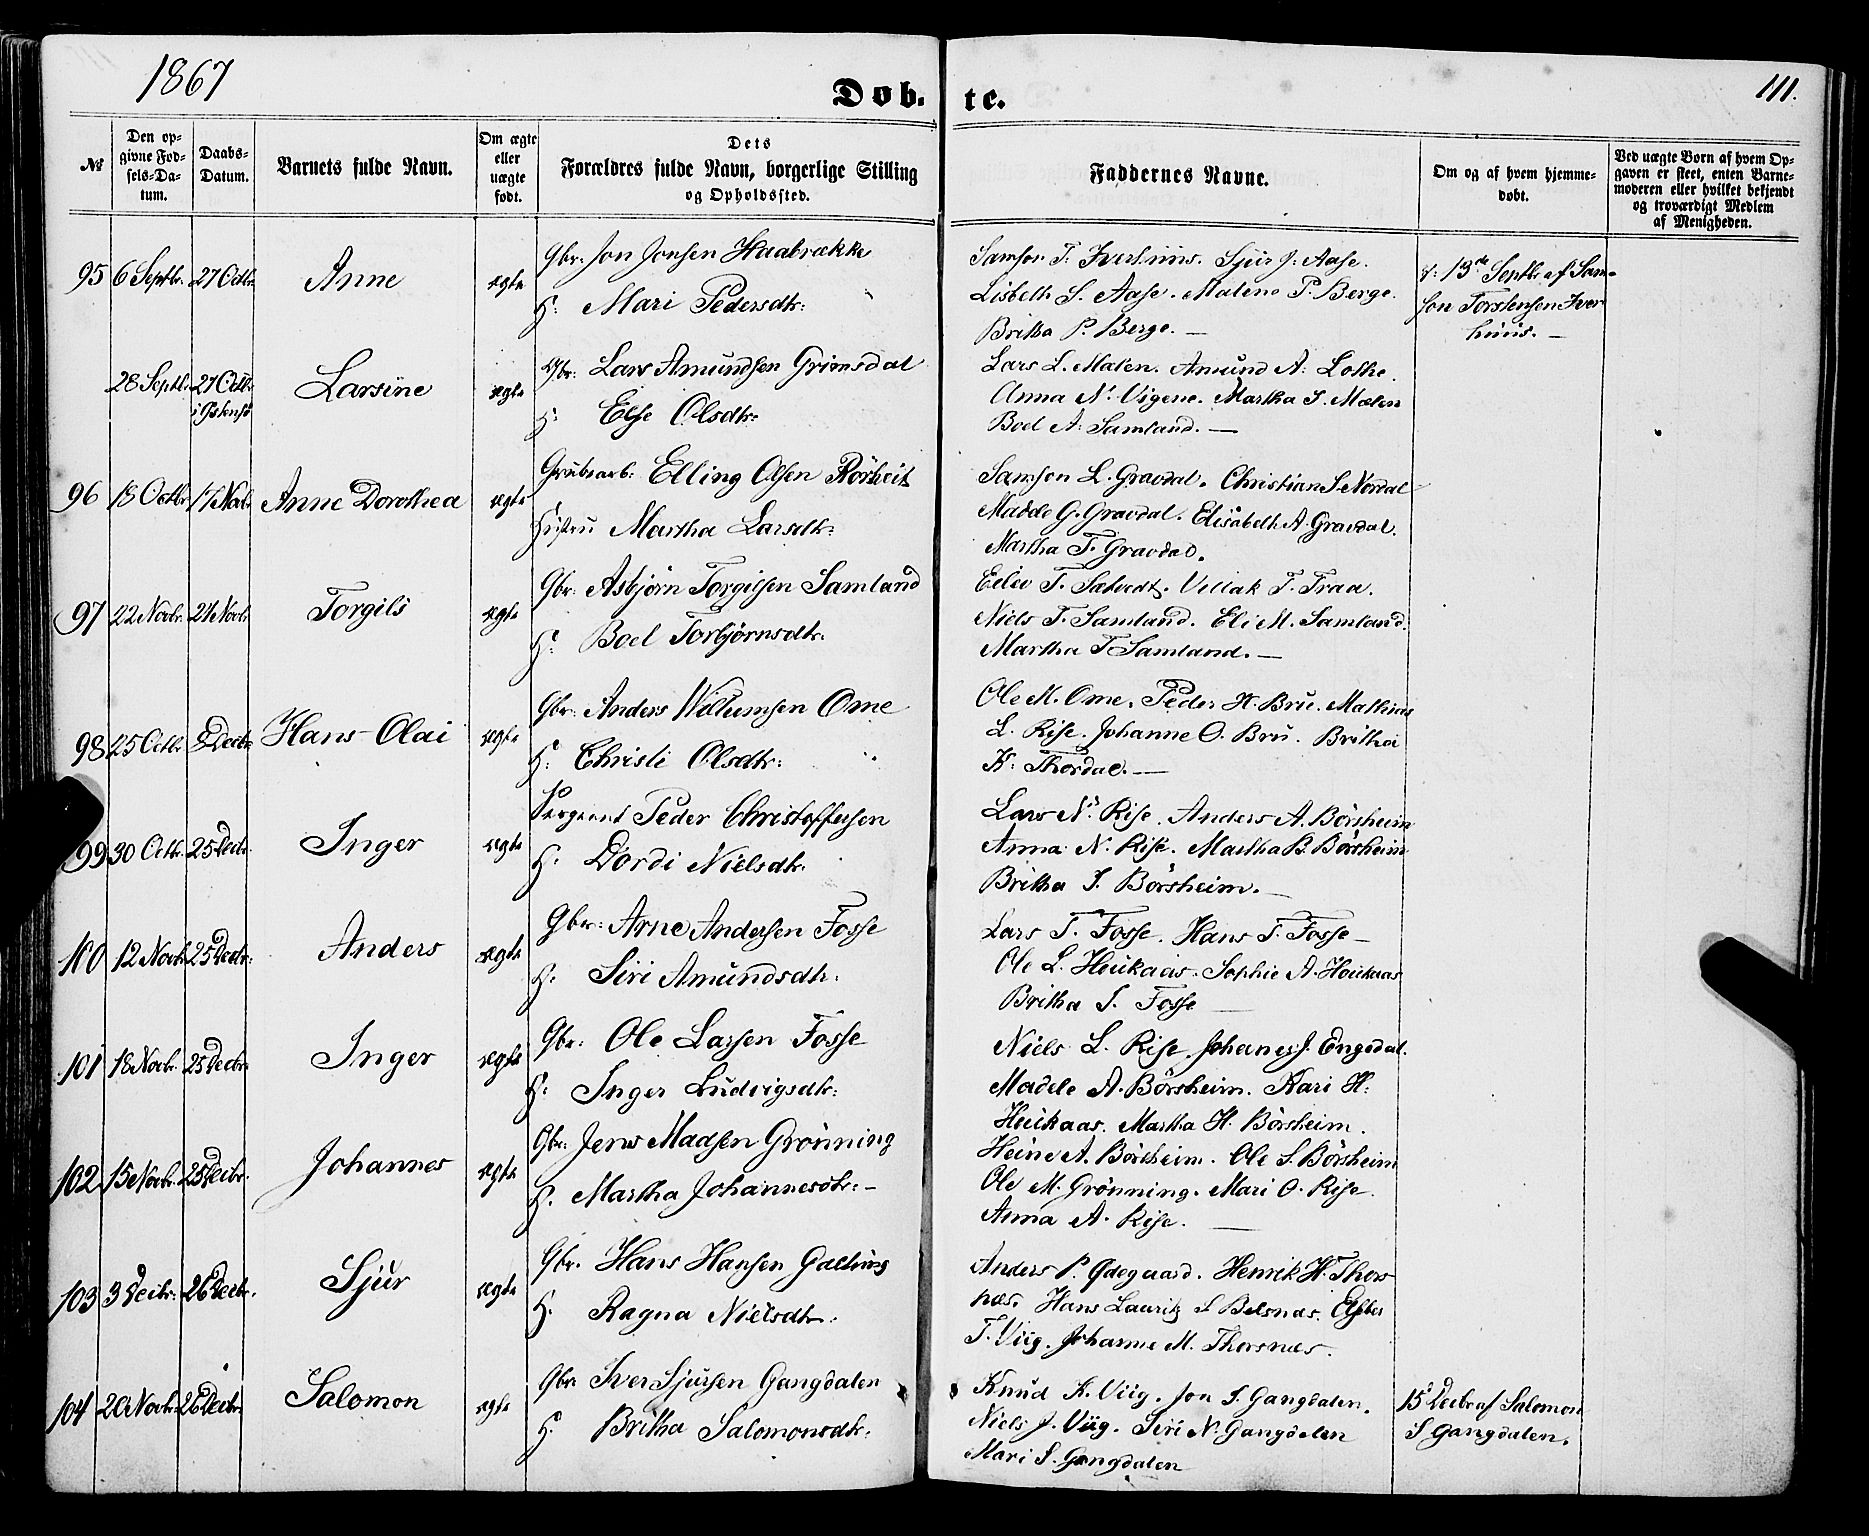 1867
Døb- te.
111.
№
Den op-
givne Fød-
sels-Da-
tum.
Daabs-
Datum.
Barnets fulde Navn.
Om ægte
eller
uægte
født.
Dets
Forældres fulde Navn, borgerlige Stilling
og Opholdssted.
Faddernes Navne.
Om og af hvem hjemme-
døbt.
Ved uægte Børn af hvem Op-
gaven er skeet, enten Barne-
moderen eller hvilket bekjendt
og troværdigt Medlem
af Menigheden.
95 6 Septbr. 27 Octbr. Anne ægte
Gbr: Jon Jonsen Haabrække
H: Mari Pedersdtr:
Samson T. Iverhuus. Sjur J: Aase.
Lisbeth S. Aase. Malene P. Berge.
Britha P. Berge. —
d: 13de Septbr af Sam-
son Torstensen Iver
huus. —
28 Septb. 27 Octbr. Larsine ægte
Gbr: Lars Amundsen Grimsdal
H: Else Olsdtr:
Lars L. Mælen. Amund A: Lothe.
Anna N. Vigene. Martha I. Mælen
Boel A: Samland. —
96 18 Octbr 17 Novb. Anne Dorothea ægte
Grubearb: Elling Olsen Rörheit
Hustru Martha Larsdtr:
Samson L. Gravdal. Christian S Nordal
Madde G. Gravdal. Elisabeth A. Gravdal.
Martha T. Gravdal.
97 22 Novbr. 24 Novb. Torgils ægte
Gbr: Asbjörn Torgilsen Samland
H: Boel Torbjörnsdtr:
Eilev T. Sætvedt. Villak T. Traa.
Niels T. Samland. Eli M. Samland.
Martha T Samland. —
98 25 Octbr 8 Decbr Hans-Olai ægte
Gbr: Anders Willumsen Ome
H: Christi Olsdtr:
Ole M. Ome. Peder H. Bru. Mathias
L. Rise. Johanne O. Bru. Britha
K. Thordal. —
99 30 Octbr. 25 Decbr. Inger ægte
Sergeant Peder Christoffersen
H: Dordi Nielsdtr.
Lars N. Rise. Anders A. Börsheim
Anna N. Rise. Martha B. Börsheim
Britha I. Börsheim. —
100 12 Novb. 25 Decbr. Anders ægte
Gbr: Arne Andersen Fosse
H: Siri Amundsdtr.
Lars T. Fosse. Hans T. Fosse —
Ole L. Heukaas. Sophie A. Heukaas
Britha I. Fosse —
101 18 Novbr. 25 Decbr. Inger ægte
Gbr: Ole Larsen Fosse
H: Inger Ludvigsdtr:
Niels L. Rise. Johannes J. Engedal.
Madele A. Börsheim. Kari H:
Heukaas. Martha H. Börsheim.
102 15 Novbr. 25 Decbr. Johannes ægte
Gbr: Jens Madsen Grönning
H. Martha Johannesdtr: —
Heine A. Börsheim. Ole S. Börsheim
Ole M. Grönning. Mari O. Rise.
Anna A. Rise. —
103 3 Decbr. 26 Decbr. Sjur ægte
Gbr. Hans Hansen Galtung
H. Ragna Nielsdtr.
Anders P. Ødegaard. Henrik H. Thors
næs. Hans Lauritz S Belsnæs. Elsber
T. Viig. Johanne M. Thorsnæs.
104 20 Novbr. 26 Decbr. Salomon ægte
Gbr Iver Sjursen Gangdalen
H. Britha Salomonsdtr.
Knud K. Viig. Jon I. Gangdalen.
Niels J. Viig. Siri N. Gangdalen
Mari S. Gangdalen
15 Decbr af Salomon
S Gangdalen.